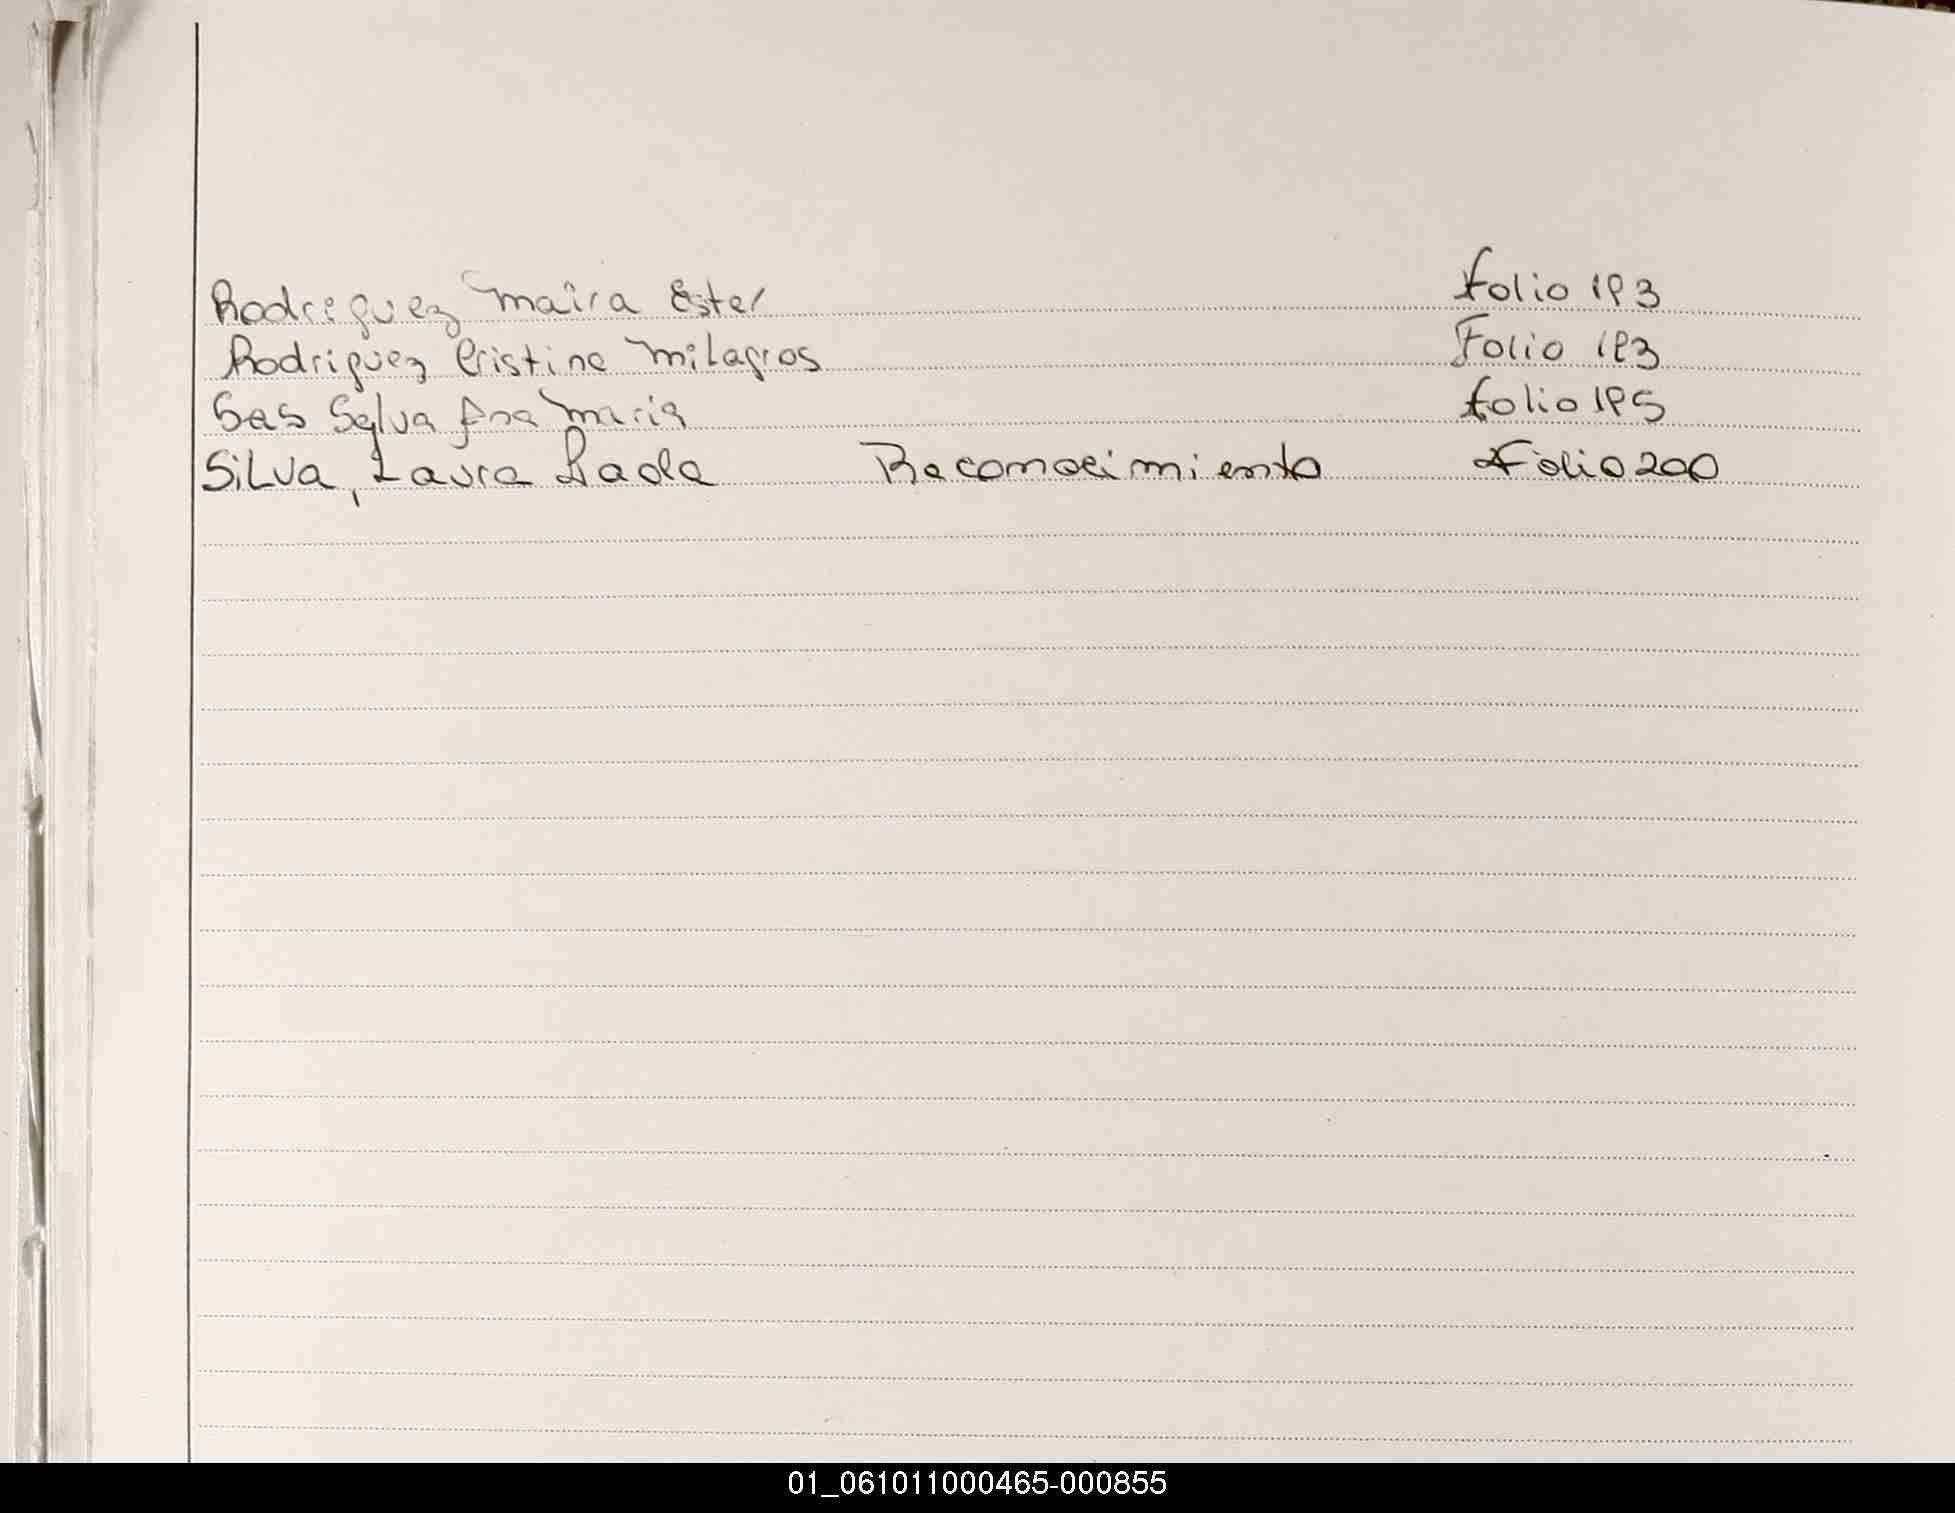 Rodriguez Maira Ester Folio 193
Rodriguez Cristina Milagros Folio 193
Sas Selva Ana Maria Folio 195
Silva, Laura Paola Reconocimiento Folio 200
01_061011000465-000855